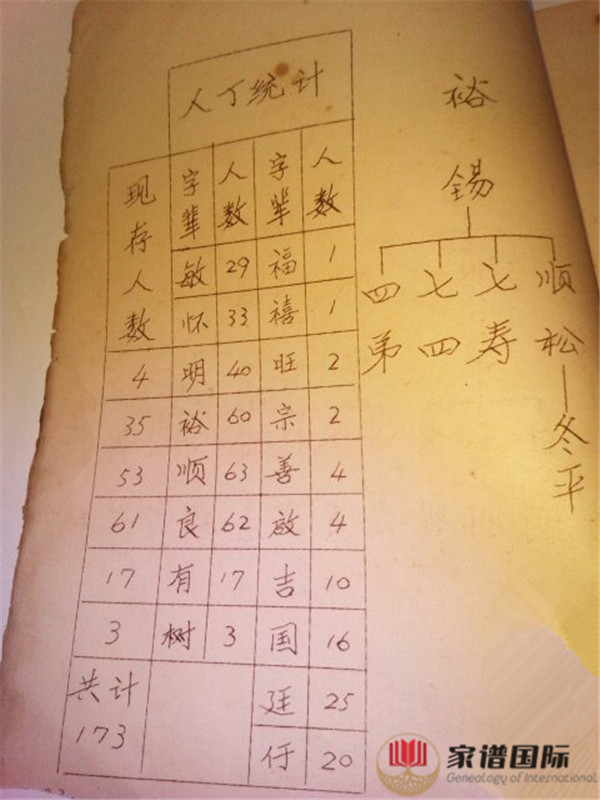 人丁统计
现存人数 字輩 人数 字輩 人数
敏 29 福 1
怀 33 禧 1
4 明 40 旺 2
35 裕 60 宗 2
53 顺 63 善 4
61 良 62 啟 4
17 有 17 吉 10
3 树 3 国 16
共计 173 廷 25
20
裕錫
顺松
七寿
七四
四第
冬平
家谱国际
Genealogy of International